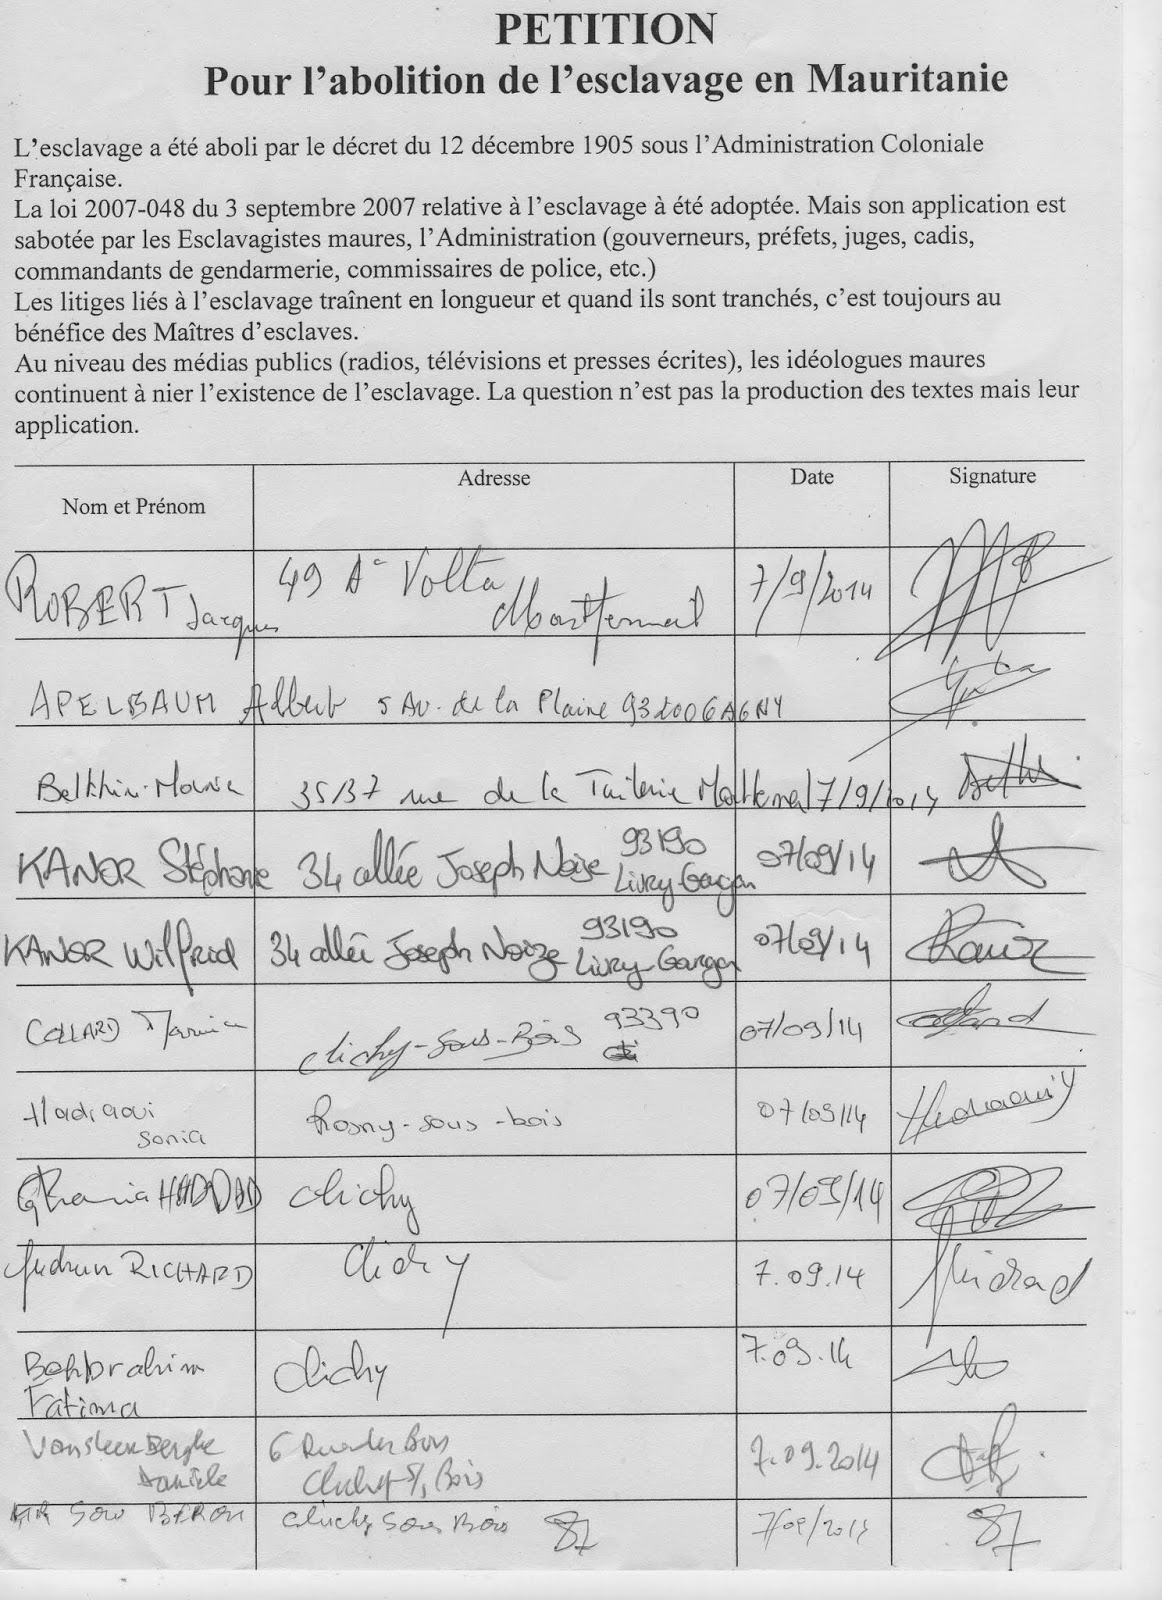 PETITION
Pour l'abolition de l'esclavage en Mauritanie
L'esclavage a été aboli par le décret du 12 décembre 1905 sous l'Administration Coloniale
Française.
La loi 2007-048 du 3 septembre 2007 relative à l'esclavage à été adoptée. Mais son application est
sabotée par les Esclavagistes maures, l'Administration (gouverneurs, préfets, juges, cadis,
commandants de gendarmerie, commissaires de police, etc.)
Les litiges liés à l'esclavage traînent en longueur et quand ils sont tranchés, c'est toujours au
bénéfice des Maîtres d'esclaves.
Au niveau des médias publics (radios, télévisions et presses écrites), les idéologues maures
continuent à nier l'existence de l'esclavage. La question n'est pas la production des textes mais leur
application.
Nom et Prénom Adresse Date Signature
ROBERT Jacques 49 Volta Montfermeil 7/9/2014
APELBAUM Albert 5 Av. de la Plaine 93200 GAGNY
35/37 rue de la Tuilerie 7/9/2014
KANOR Stéphane 34 allée Joseph Noize 93190 Livry-Gargan 07/09/14
KANOR Wilfrid 34 allée Joseph Noize 93190 Livry-Gargan 07/09/14
COLLARD clichy-sous-Bois 93390 07/09/14
Hadraoui Sonia Rosny-sous-bois 07/09/14
Ghania HADDAD clichy 07/09/14
RICHARD Clichy 7.09.14
Benbrahim Fatima Clichy 7.09.14
Daniele 6 Bois Clichy s/ Bois 7.09.2014
Sow clichy Sous Bois 7/09/2014